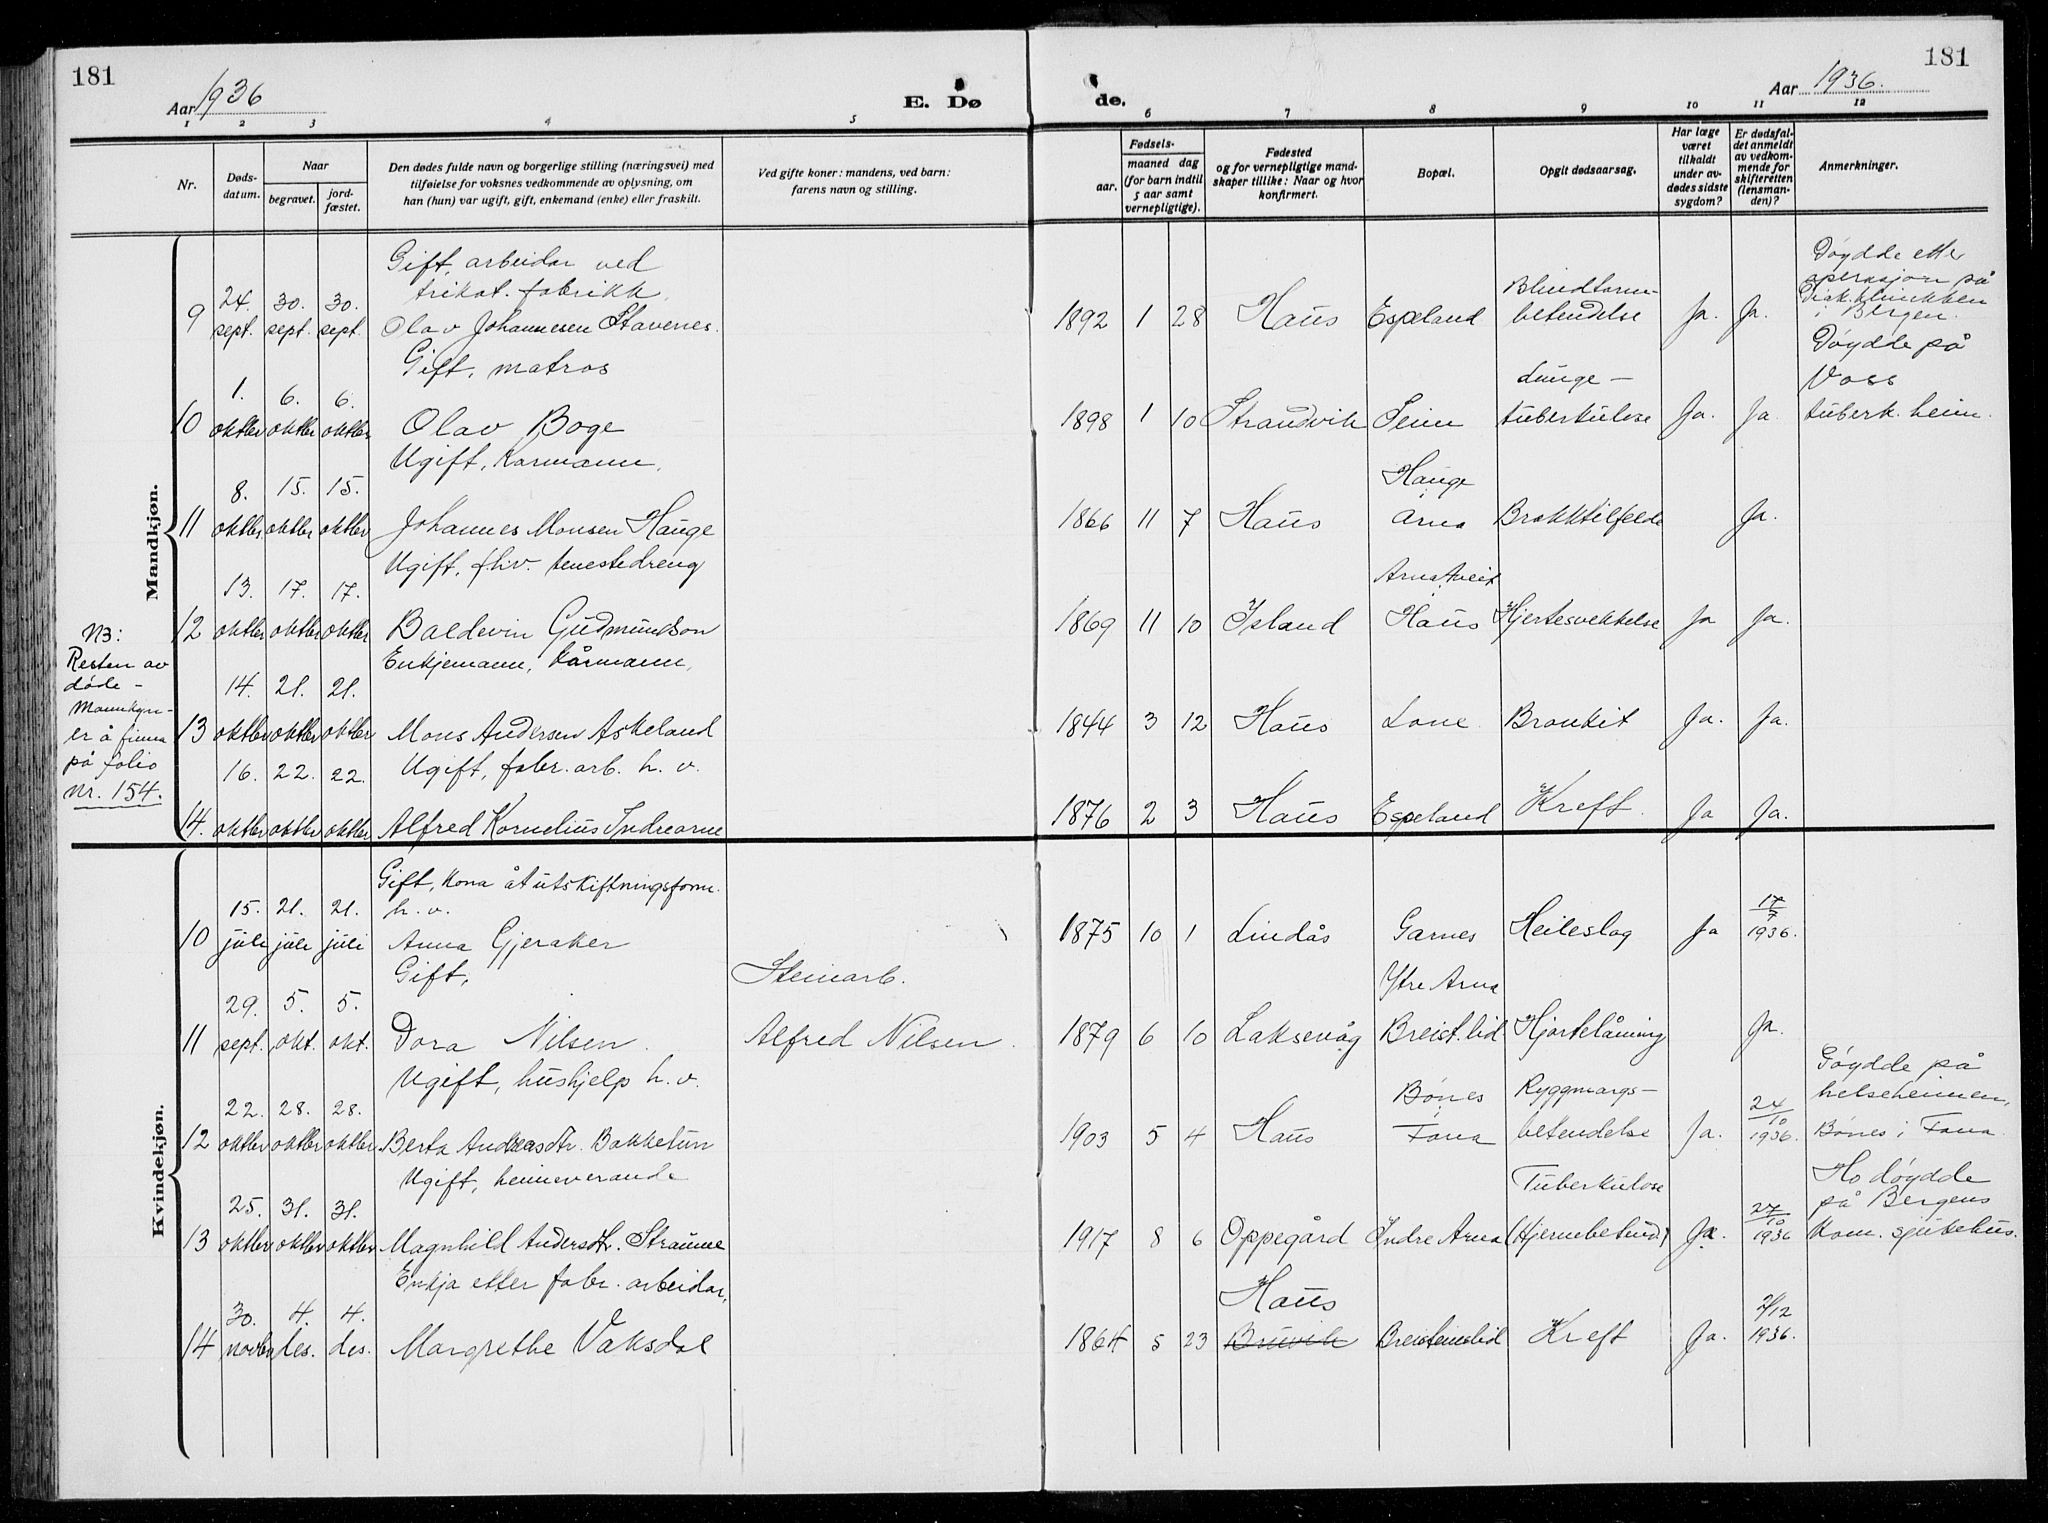 181
Aar 1936
E. Dø
de.
Aar 1936.
181
1
2
3
4
5
6
7
8
9
10
11
12
Nr.
Døds-
datum.
Naar
begravet.
jord-
fæstet.
Den dødes fulde navn og borgerlige stilling (næringsvei) med
tilføielse for voksnes vedkommende av oplysning, om
han (hun) var ugift, gift, enkemand (enke) eller fraskilt.
Ved gifte koner: mandens, ved barn:
farens navn og stilling.
Fødsels-
aar.
maaned dag
(for barn indtil
5 aar samt
vernepligtige).
Fødested
og for vernepligtige mand-
skaper tillike: Naar og hvor
konfirmert.
Bopæl.
Opgit dødsaarsag.
Har læge
været
tilkaldt
under av-
dødes sidste
sygdom?
Er dødsfal-
det anmeldt
av vedkom-
mende for
skifteretten
(lensman-
den)?
Anmerkninger.
Mandkjøn.
Gift, arbeidar ved
trikot. fabrikk.
9 24. sept. 30. sept. 30. sept. Olav Johannesen Stavenes. 1892 1 28 Haus Espeland Blindtarm-
betendelse Ja. Ja. Døydde etter
operasjon på
Diak.klinikken
i Bergen.
Gift, matros
10 1. oktbr 6. oktbr 6. oktbr Olav Boge 1898 1 10 Strandvik Seim Lunge-
tuberkulose Ja. Ja Døydde på
Voss
tuberk. heim.
Ugift, Karmann.
11 8. oktbr 15. oktbr 15. oktbr Johannes Monsen Hauge 1866 11 7 Haus Hauge
Arna Brokktilfelde Ja.
Ugift, fhv. tenestedreng
12 13. oktbr 17. oktbr 17. oktbr Baldevin Gudmundson 1869 11 10 Island Arnatveit
Haus Hjertesvekkelse Ja Ja.
Enkjemann, kårmann,
13 14. oktbr 21. oktbr 21. oktbr Mons Andersen Askeland 1844 3 12 Haus Lone. Bronkit Ja. Ja.
Ugift, fabr. arb. h. v.
14. 16. oktbr 22. oktbr 22. oktbr Alfred Kornelius Indrearne 1876 2 3 Haus Espeland Kreft. Ja Ja.
NB:
Resten av
døde -
Mannkyn -
er å finna
på folio
Nr. 154.
Kvindekjøn.
Gift, Kona åt utskiftningsform.
h. v.
10 15. juli 21. juli 21. juli Anna Gjeraker 1875 10 1 Lindås Garnes Heileslag Ja 17/7 1936.
Gift, Steinarb.
11 29. sept. 5. okt. 5. okt. Dora Nilsen. Alfred Nilsen. 1879 6 10 Laksevåg Ytre Arna
Breist.lid Hjartelåming Ja.
Ugift, hushjelp h. v.
12 22. oktbr 28. oktbr 28. oktbr. Berta Andreasdtr. Bakketun 1903 5 4 Haus Bönes
i
Fana Ryggmargs-
betendelse Ja. 24/10 1936. Döydde på
helseheimen,
Bönes i Fana.
Ugift, heimeverande
13 25. oktbr 31. oktbr 31. oktbr Magnhild Andersdtr. Straume 1917 8 6 Oppegård Indre Arna Tuberkulose
(Hjernebetend.) Ja. 27/10 1936 Ho döydde
på Bergens
Kom. sjukehus.
Enkja etter fabr. arbeidar,
14 30. novbr 4. des. 4. des. Margrethe Vaksdal 1864 5 23 Haus
Bruvik Breisteinslid Kreft Ja. 2/12 1936.